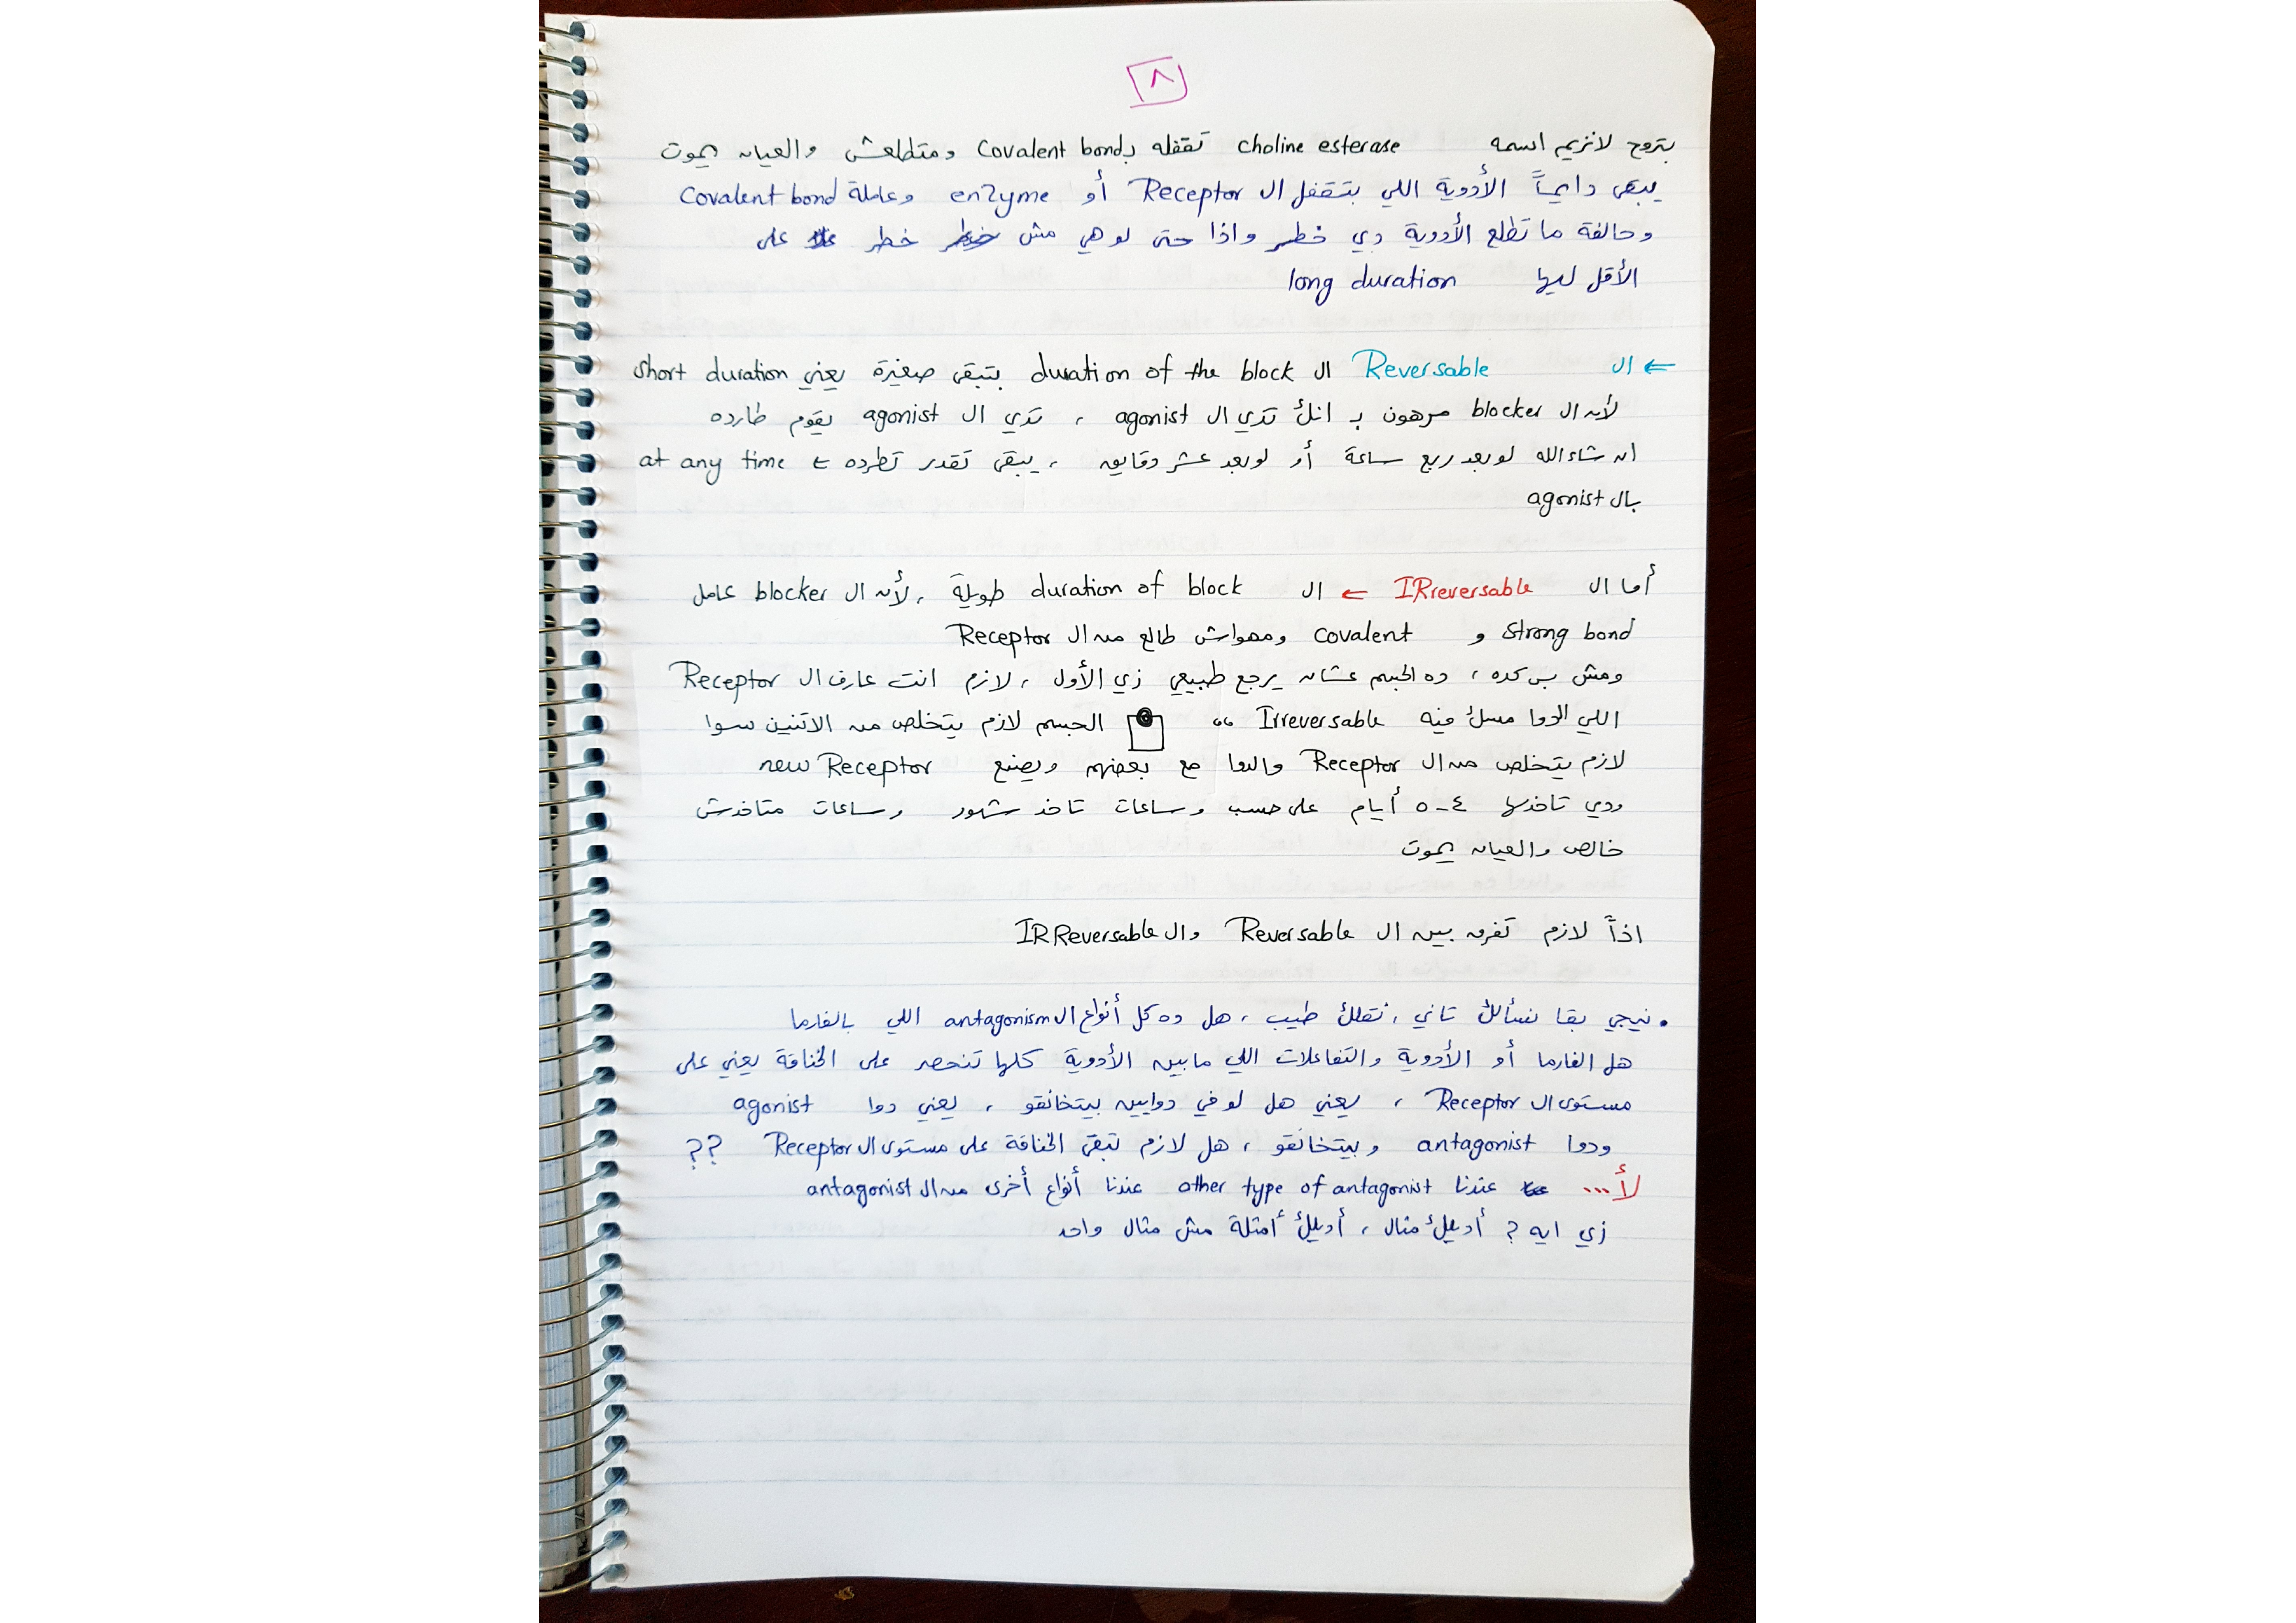 ٨
بتروح لانزيم اسمه choline esterase تقفله بـ Covalent bond ومتطلعش والعيان يموت
يبقى دايماً الأدوية اللي بتقفل ال Receptor أو enzyme وعاملة Covalent bond
وحالفة ما تطلع الأدوية دي خطر واذا حتى لو هي مش خطر على
الأقل ليها long duration
← ال Reversable ال duration of the block بتبقى صغيرة يعني short duration
لأن ال blocker مرهون بـ انك تدي ال agonist ، تدي ال agonist يقوم طارده
ان شاء الله لو بعد ربع ساعة أو لو بعد عشر دقايق ، يبقى تقدر تطرده ← at any time
بال agonist
أما ال IRreversable ← ال duration of block طويلة ، لأن ال blocker عامل
strong bond و covalent ومهواش طالع من ال Receptor
ومش بس كده ، ده الجسم عشان يرجع طبيعي زي الأول ، لازم انت عارف ال Receptor
اللي الدوا مسك فيه Irreversable “ الجسم لازم يتخلص من الاتنين سوا
لازم يتخلص من ال Receptor والدوا مع بعضهم ويصنع new Receptor
ودي تاخدها ٤-٥ أيام على حسب وساعات تاخد شهور وساعات متاخدش
خالص والعيان يموت
اذاً لازم تفرق بين ال Reversable وال IRReversable
• نيجي بقا نسألك تاني ، نقلك طيب ، هل ده كل أنواع ال antagonism اللي بالفارما
هل الفارما أو الأدوية والتفاعلات اللي مابين الأدوية كلها تنحصر على الخناقة يعني على
مستوى ال Receptor ، يعني هل لو في دوايين بيتخانقو ، يعني دوا agonist
ودوا antagonist وبيتخانقو ، هل لازم تبقى الخناقة على مستوى ال Receptor ??
لأ... عندنا other type of antagonist عندنا أنواع أخرى من ال antagonist
زي ايه ? أديلك مثال ، أديلك أمثلة مش مثال واحد